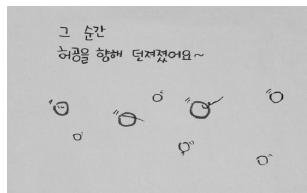 그 순간
허공을 향해 던져졌어요~